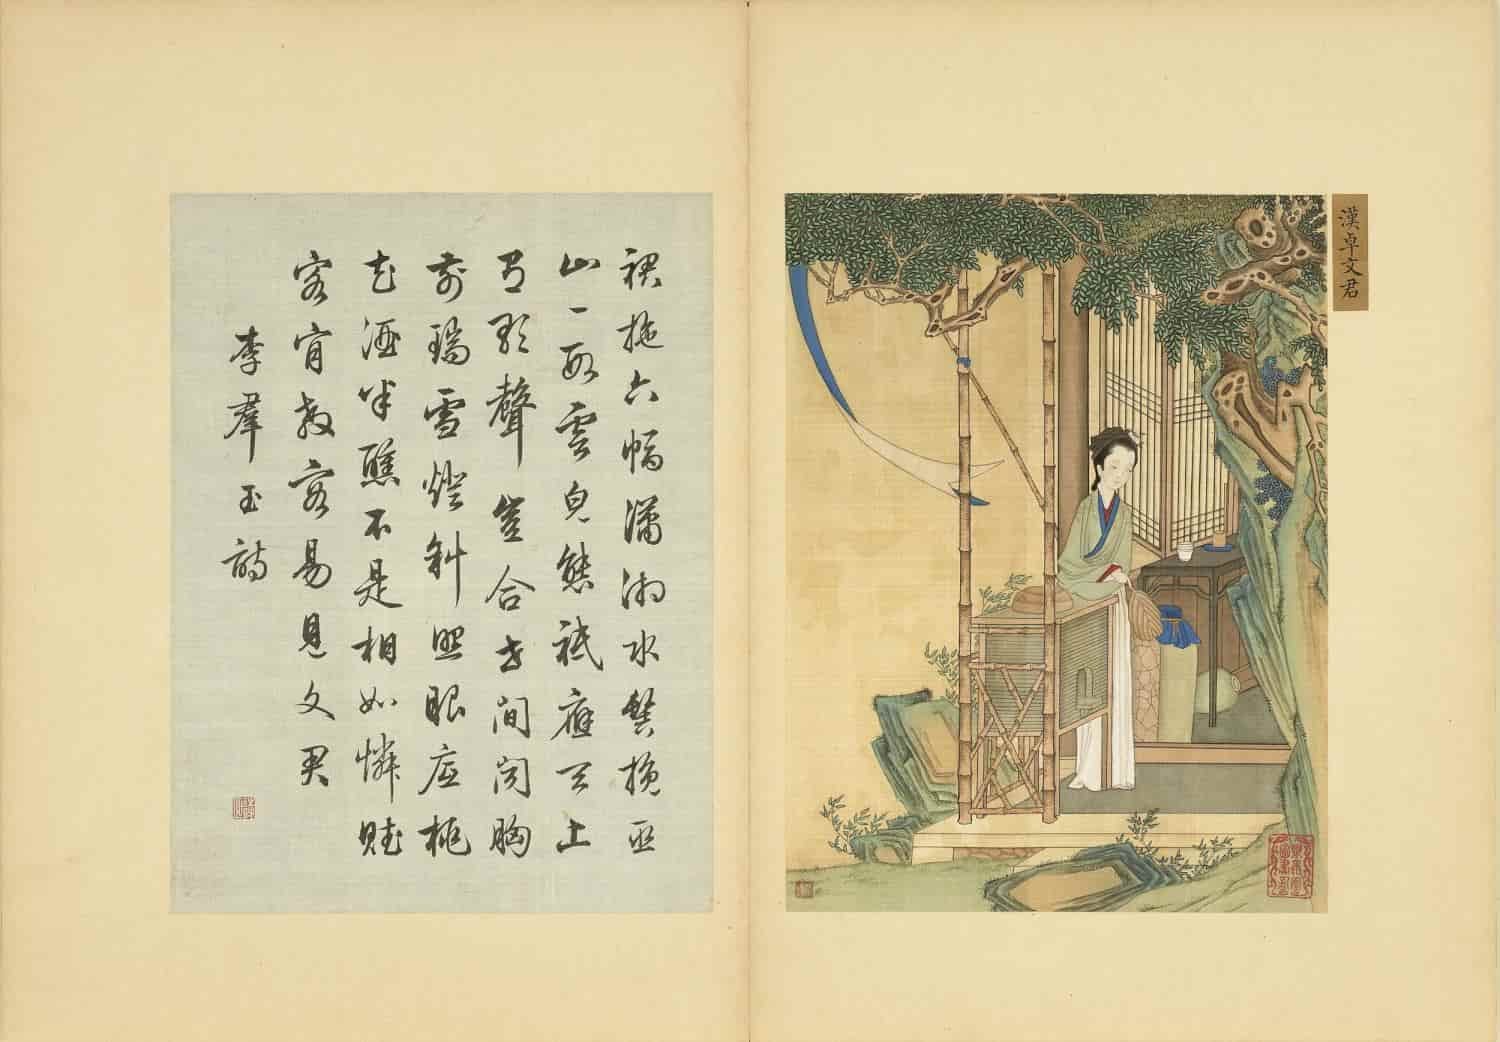 漢卓文君
裙拖六幅瀟湘水鬢挽巫
山一段雲皃態祇應天上
有歌聲豈合世間聞胸
前瑞雪燈斜照眼底桃
花酒半醺不是相如憐賦
客肎教容易見文君
李羣玉詩